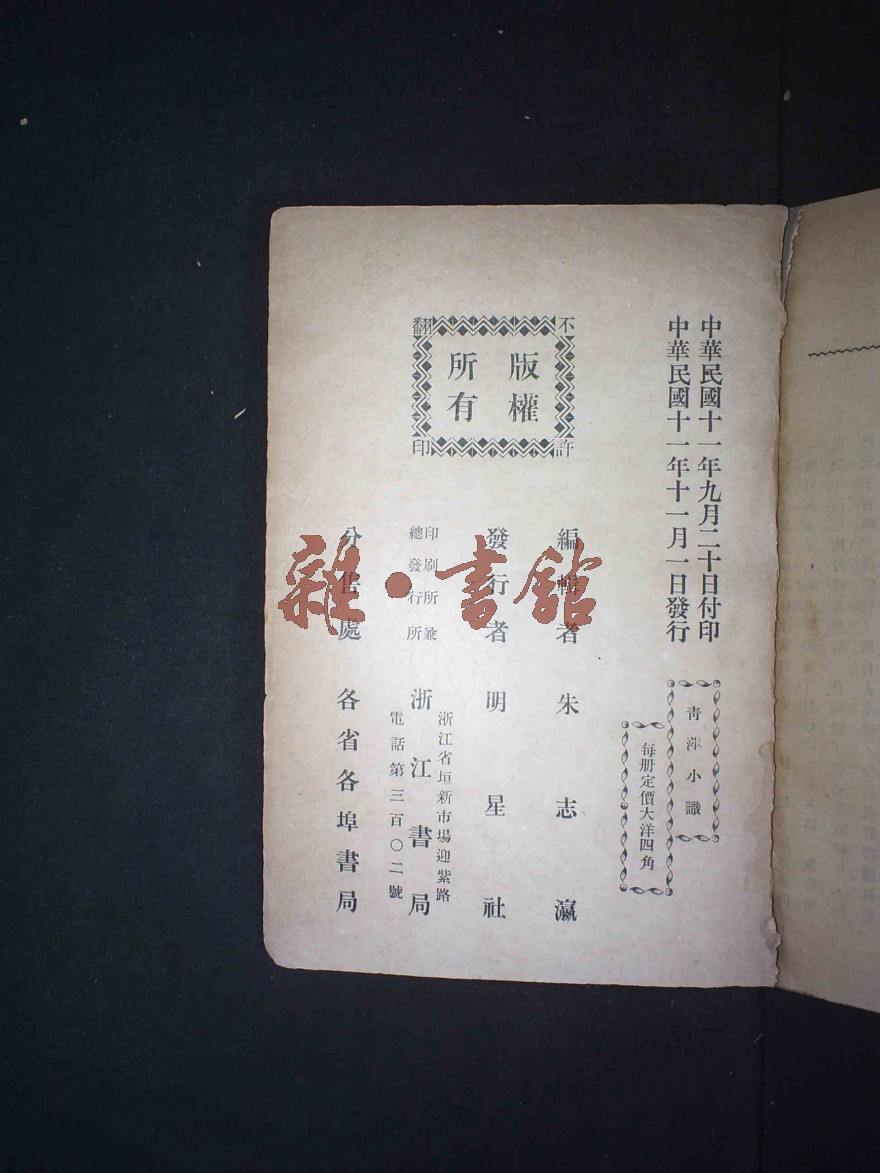 中華民國十一年九月二十日付印
中華民國十一年十一月一日發行
青萍小識
每册定價大洋四角
版權所有
不許翻印
編輯者 朱志瀛
發行者 明星社
印刷所兼總發行所 浙江書局
浙江省垣新市場迎紫路
電話第三百〇二號
分售處 各省各埠書局
雜·書館